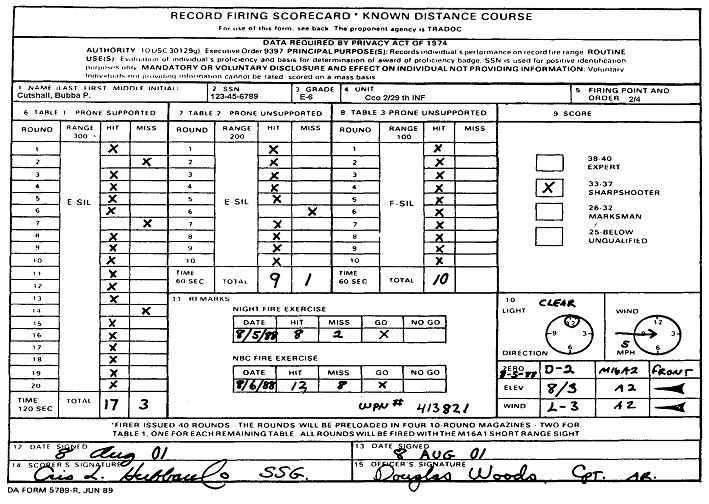 RECORD FIRING SCORECARD * KNOWN DISTANCE COURSE
For use of this form, see back. The proponent agency is TRADOC
DATA REQUIRED BY PRIVACY ACT OF 1974
AUTHORITY 10 USC 30129g) Executive Order 9397 PRINCIPAL PURPOSE(S): Records individual's performance on record fire range. ROUTINE
USE(S): Evaluation of individual's proficiency and basis for determination of award of proficiency badge. SSN is used for positive identification
purposes only. MANDATORY OR VOLUNTARY DISCLOSURE AND EFFECT ON INDIVIDUAL NOT PROVIDING INFORMATION: Voluntary
Individuals not providing information cannot be rated scored on a mass basis
1 NAME (LAST FIRST MIDDLE INITIAL) 2 SSN 3 GRADE 4 UNIT 5 FIRING POINT AND
Cutshall, Bubba P. 123-45-6789 E-6 Cco 2/29 th INF ORDER 2/4
6 TABLE 1 PRONE SUPPORTED 7 TABLE 2 PRONE UNSUPPORTED 8 TABLE 3-PRONE UNSUPPORTED 9 SCORE
ROUND RANGE 300 HIT MISS ROUND RANGE 200 HIT MISS ROUND RANGE 100 HIT MISS
1 X 1 X 1 X
2 X 2 X 2 X 38-40
3 X 3 X 3 X EXPERT
4 X 4 X 4 X X 33-37
5 E-SIL X 5 E-SIL X 5 F-SIL X SHARPSHOOTER
6 X 6 X 6 X 26-32
7 X 7 X 7 X MARKSMAN
8 X 8 X 8 X 25-BELOW
9 X 9 X 9 X UNQUALIFIED
10 X 10 X 10 X
11 X TIME 60 SEC TOTAL 9 1 TIME 60 SEC TOTAL 10
12 X
13 X 11 REMARKS 10 CLEAR
14 X NIGHT FIRE EXERCISE LIGHT WIND
15 X DATE HIT MISS GO NO GO 12 3 6 9 12 9 3 6
16 X 8/5/88 8 2 X 5
17 X NBC FIRE EXERCISE DIRECTION MPH
18 X DATE HIT MISS GO NO GO ZERO 8-5-88 D-2 M16A2 FRONT
19 X 8/6/88 12 8 X
20 X ELEV 8/3 A2
TIME 120 SEC TOTAL 17 3 WPN # 413821 WIND L-3 A2
*FIRER ISSUED 40 ROUNDS THE ROUNDS WILL BE PRELOADED IN FOUR 10-ROUND MAGAZINES - TWO FOR
TABLE 1, ONE FOR EACH REMAINING TABLE ALL ROUNDS WILL BE FIRED WITH THE M16A1 SHORT RANGE SIGHT
12 DATE SIGNED 13 DATE SIGNED
8 Aug 01 8 AUG 01
14 SCORER'S SIGNATURE 15 OFFICER'S SIGNATURE
Cris L. SSG. Douglas Woods CPT. AR.
DA FORM 5789-R, JUN 89